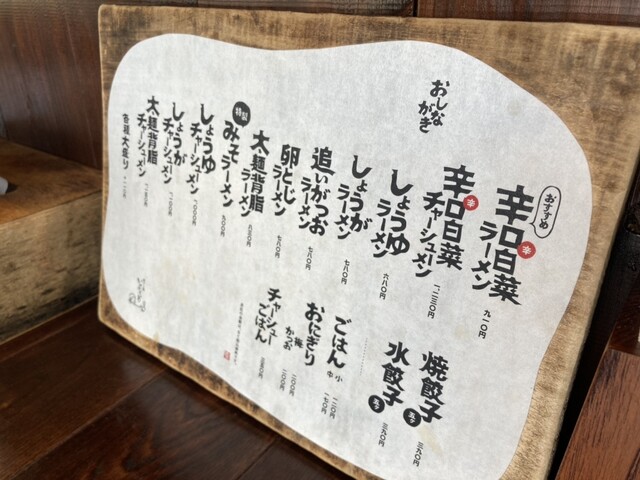 おしながき
おすすめ
辛口白菜ラーメン 辛 九一〇円
辛口白菜チャーシューメン 辛 一二三〇円
しょうゆラーメン 六八〇円
しょうがラーメン 七八〇円
追いがつおラーメン 七八〇円
卵とじラーメン 七八〇円
太麺背脂ラーメン 八三〇円
特製 みそラーメン 九〇〇円
しょうゆチャーシューメン 一〇〇〇円
しょうがチャーシューメン
太麺背脂チャーシューメン
各種大盛り
焼餃子 三九〇円
水餃子 三九〇円
ごはん 小 一二〇円
中 一七〇円
おにぎり 梅 かつお 二〇〇円 二〇〇円
チャーシューごはん 三五〇円